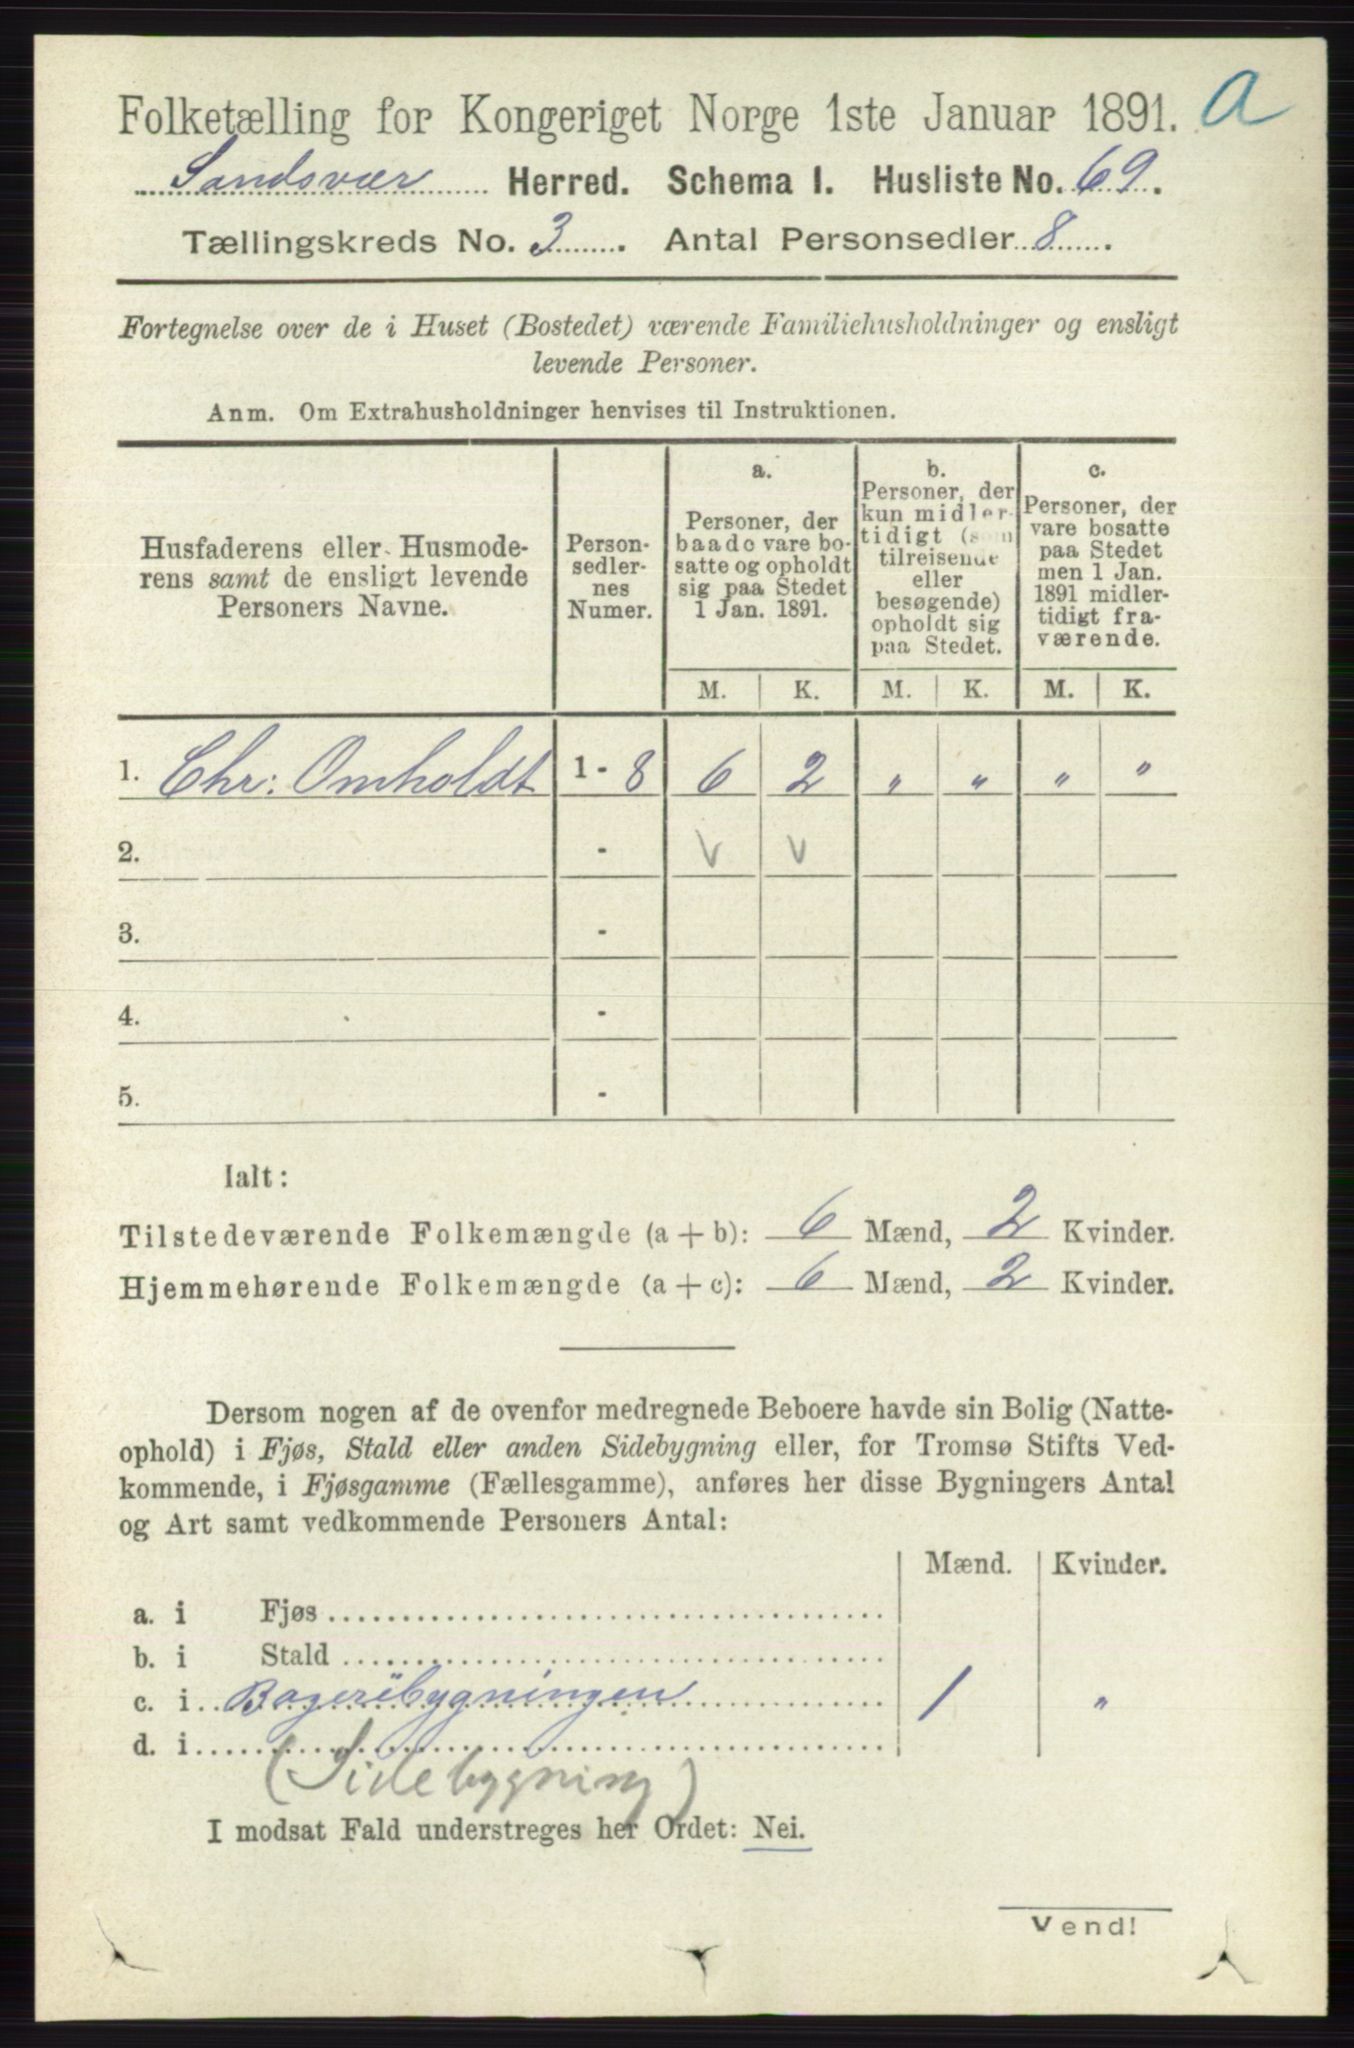 Folketælling for Kongeriget Norge 1ste Januar 1891. a
Sandsvær Herred. Schema I. Husliste No. 69.
Tællingskreds No. 3. Antal Personsedler 8.
Fortegnelse over de i Huset (Bostedet) værende Familiehusholdninger og ensligt
levende Personer.
Anm. Om Extrahusholdninger henvises til Instruktionen.
Husfaderens eller Husmode-
rens samt de ensligt levende
Personers Navne.
Person-
sedler-
nes
Numer.
a.
Personer, der
baade vare bo-
satte og opholdt
sig paa Stedet
1 Jan. 1891.
b.
Personer, der
kun midler-
tidigt (som
tilreisende
eller
besøgende)
opholdt sig
paa Stedet.
c.
Personer, der
vare bosatte
paa Stedet
men 1 Jan.
1891 midler-
tidigt fra-
værende.
M. K. M. K. M. K.
1. Chr: Omholdt 1 - 8 6 2 " " " "
2. - v v
3. -
4. -
5. -
Ialt:
Tilstedeværende Folkemængde (a + b): 6 Mænd, 2 Kvinder.
Hjemmehørende Folkemængde (a + c): 6 Mænd, 2 Kvinder.
Dersom nogen af de ovenfor medregnede Beboere havde sin Bolig (Natte-
ophold) i Fjøs, Stald eller anden Sidebygning eller, for Tromsø Stifts Ved-
kommende, i Fjøsgamme (Fællesgamme), anføres her disse Bygningers Antal
og Art samt vedkommende Personers Antal:
Mænd. Kvinder.
a. i Fjøs
b. i Stald
c. i Bageribygningen 1 "
d. i
(Sidebygning)
I modsat Fald understreges her Ordet: Nei.
Vend!